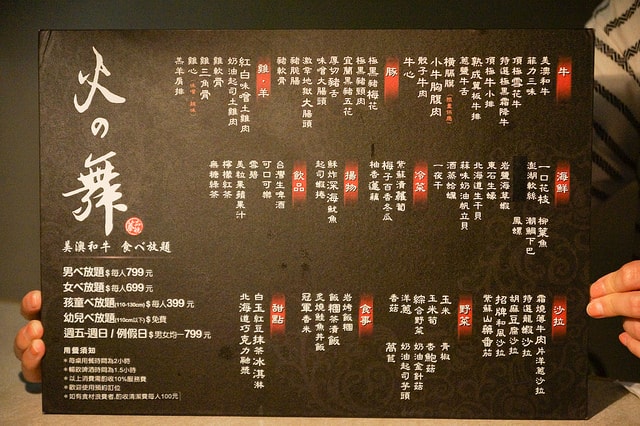 火の舞
美澳和牛 食べ放題
男べ放題$每人799元
女べ放題$每人699元
孩童べ放題(110-130cm)$每人399元
幼兒べ放題(110cm以下)$免費
週五-週日/例假日$男女均一799元
用餐須知
每桌用餐時間為2小時
暢飲啤酒時間為1.5小時
以上消費需酌收10%服務費
歡迎使用預約訂位
如有食材浪費者,酌收清潔費每人100元
牛
美澳和牛
菲力三味
頂極雪花牛
特選極黑霜降牛
頂極牛小排
熟成翼板牛排
蔥鹽牛舌
橫膈膜
小牛胸腹肉
骰子牛肉
牛心
豚
極黑豬梅花
極黑豬頸肉
宜蘭黑豬五花
厚切豬舌
味噌大腸頭
激辛地獄大腸頭
脆腸
豬軟骨
雞.羊
紅白味噌土雞肉
奶油起司土雞肉
雞軟骨
雞三角骨
雞心
羔羊肩排
海鮮
一口花枝
柳葉魚
澎湖軟絲
潮鯛下巴
岩鹽海草蝦
鳳螺
東石生蠔
北海道生干貝
蒜味奶油帆立貝
酒蒸蛤蠣
一夜干
冷菜
紫蘇漬蘿蔔
梅子百香冬瓜
柚香蓮藕
揚物
鮮炸深海魷魚
起司蝦捲
飲品
台灣生啤酒
可口可樂
雪碧
美粒果蘋果汁
檸檬紅茶
無糖綠茶
沙拉
霜燒薄牛肉片洋蔥沙拉
特選龍蝦沙拉
胡麻豆腐沙拉
招牌和風沙拉
紫蘇山藥番茄
野菜
玉米
青椒
玉米筍
杏鮑菇
綜合野菜
奶油金針菇
洋蔥
奶油起司芋頭
香菇
萵苣
食事
岩烤飯糰
飯糰茶漬飯
炙燒鮭魚丼飯
冠軍香米
甜點
白玉紅豆抹茶冰淇淋
北海道巧克力融漿